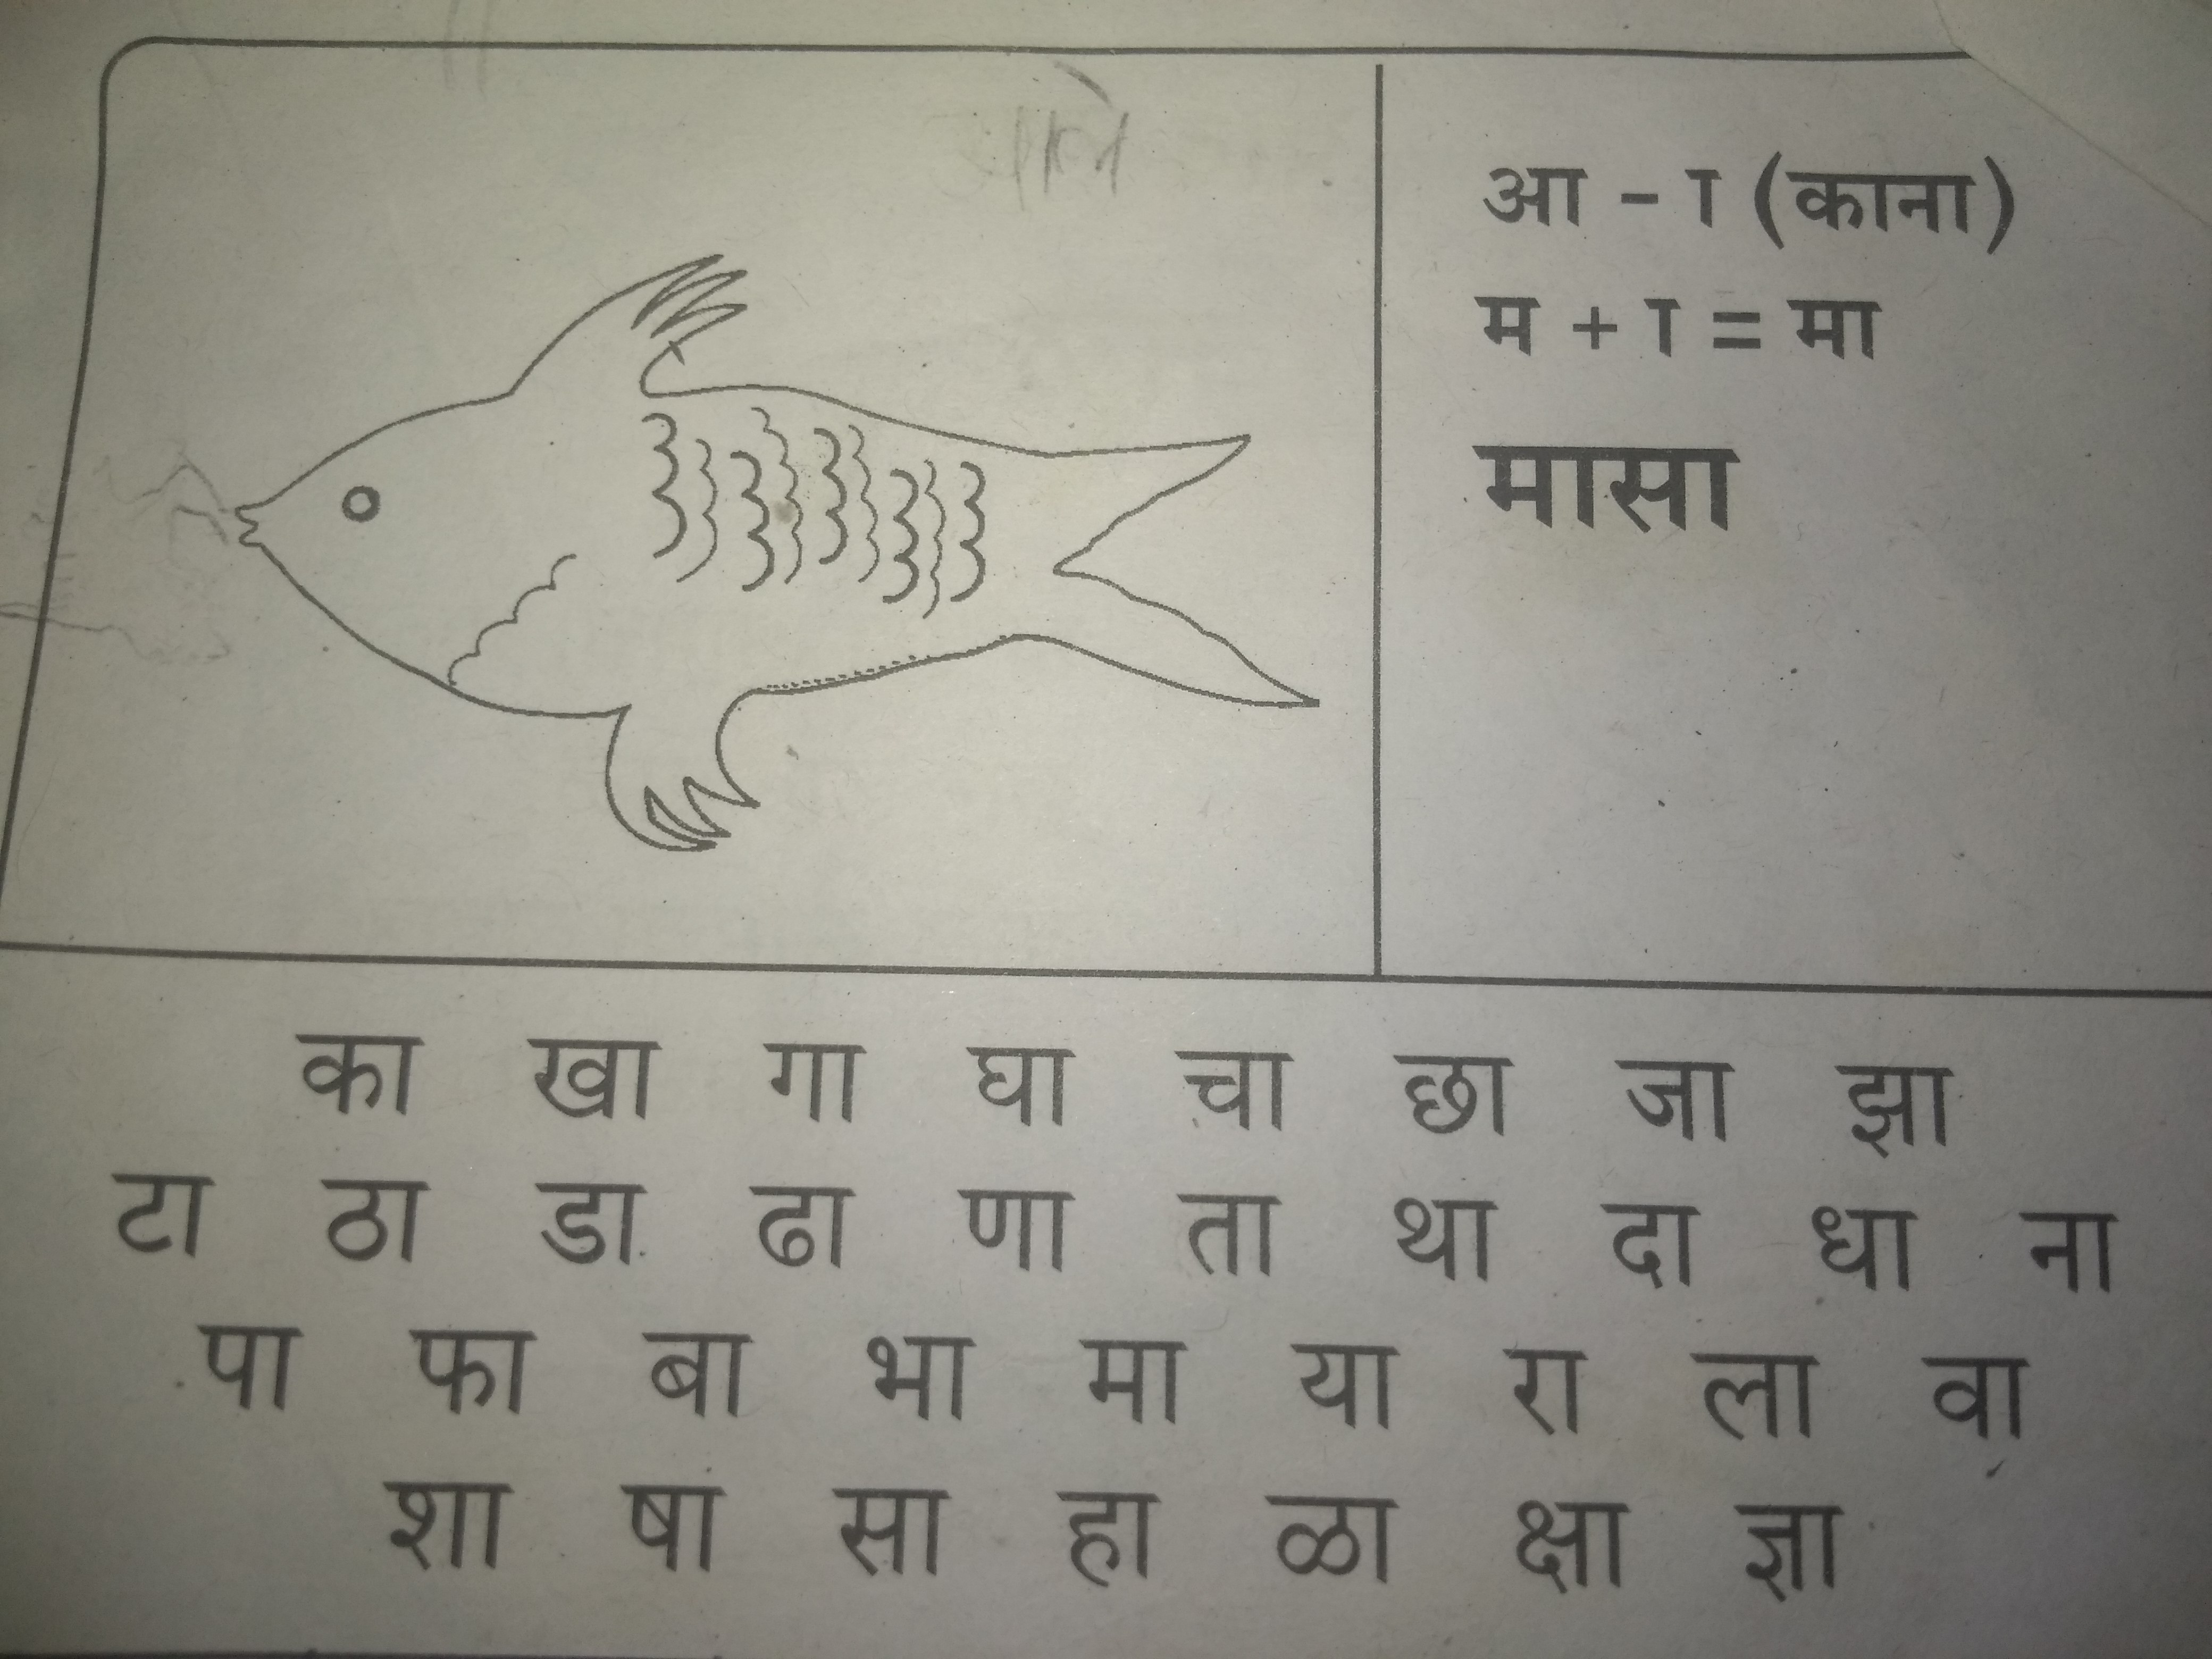 आ - ा (काना)
म + ा = मा
मासा
का खा गा घा चा छा जा झा
टा ठा डा ढा णा ता था दा धा ना
पा फा बा भा मा या रा ला वा
शा षा सा हा ळा क्षा ज्ञा